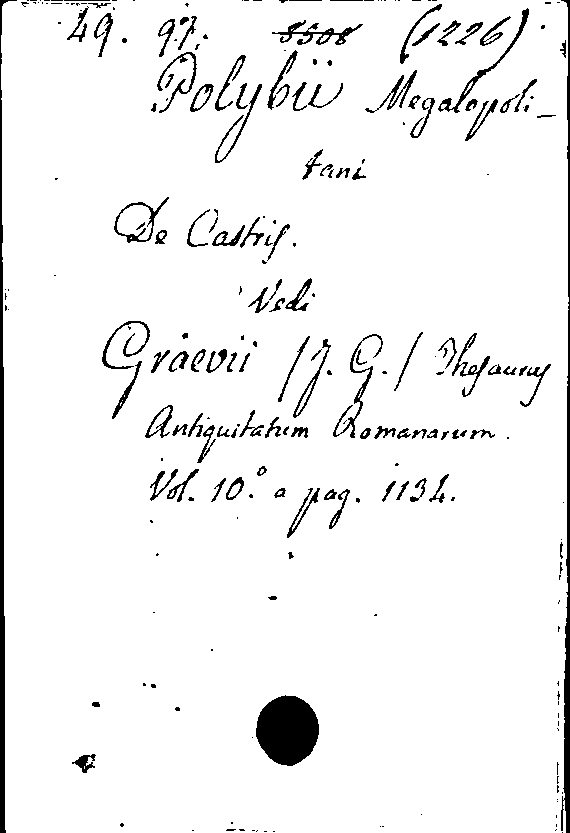 49. 97. 8508 (1226)
Polybii Megalopoli-
tani
De Castris.
Vedi
Graevii /J. G./ Thesaurus
Antiquitatum Romanarum.
Vol. 10.° a pag. 1134.